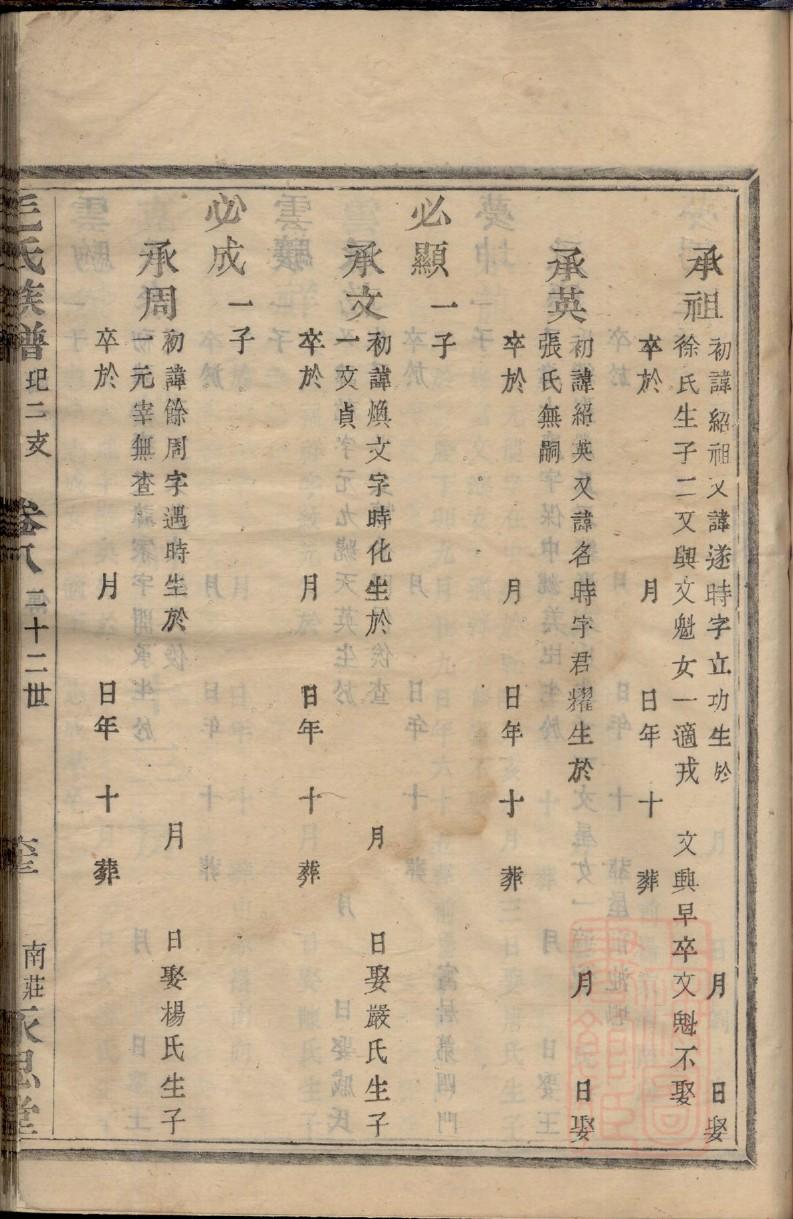 承祖 初諱紹祖又諱遂時字立功生於 月 日娶
徐氏生子二文與文魁女一適戎 文興早卒文魁不娶
卒於 月 日年 十 葬
承英 初諱紹英又諱名時字君燿生於 月 日娶
張氏無嗣
卒於 月 日年 十 葬
必顯 一子
承文 初諱煥文字時化生於 月 日娶嚴氏生子
一文貞
卒於 月 日年 十 葬
必成 一子
承周 初諱餘周字遇時生於 月 日娶楊氏生子
一元宰無查
卒於 月 日年 十 葬
毛氏族譜 玘二支 卷八 二十二世 南莊永思堂